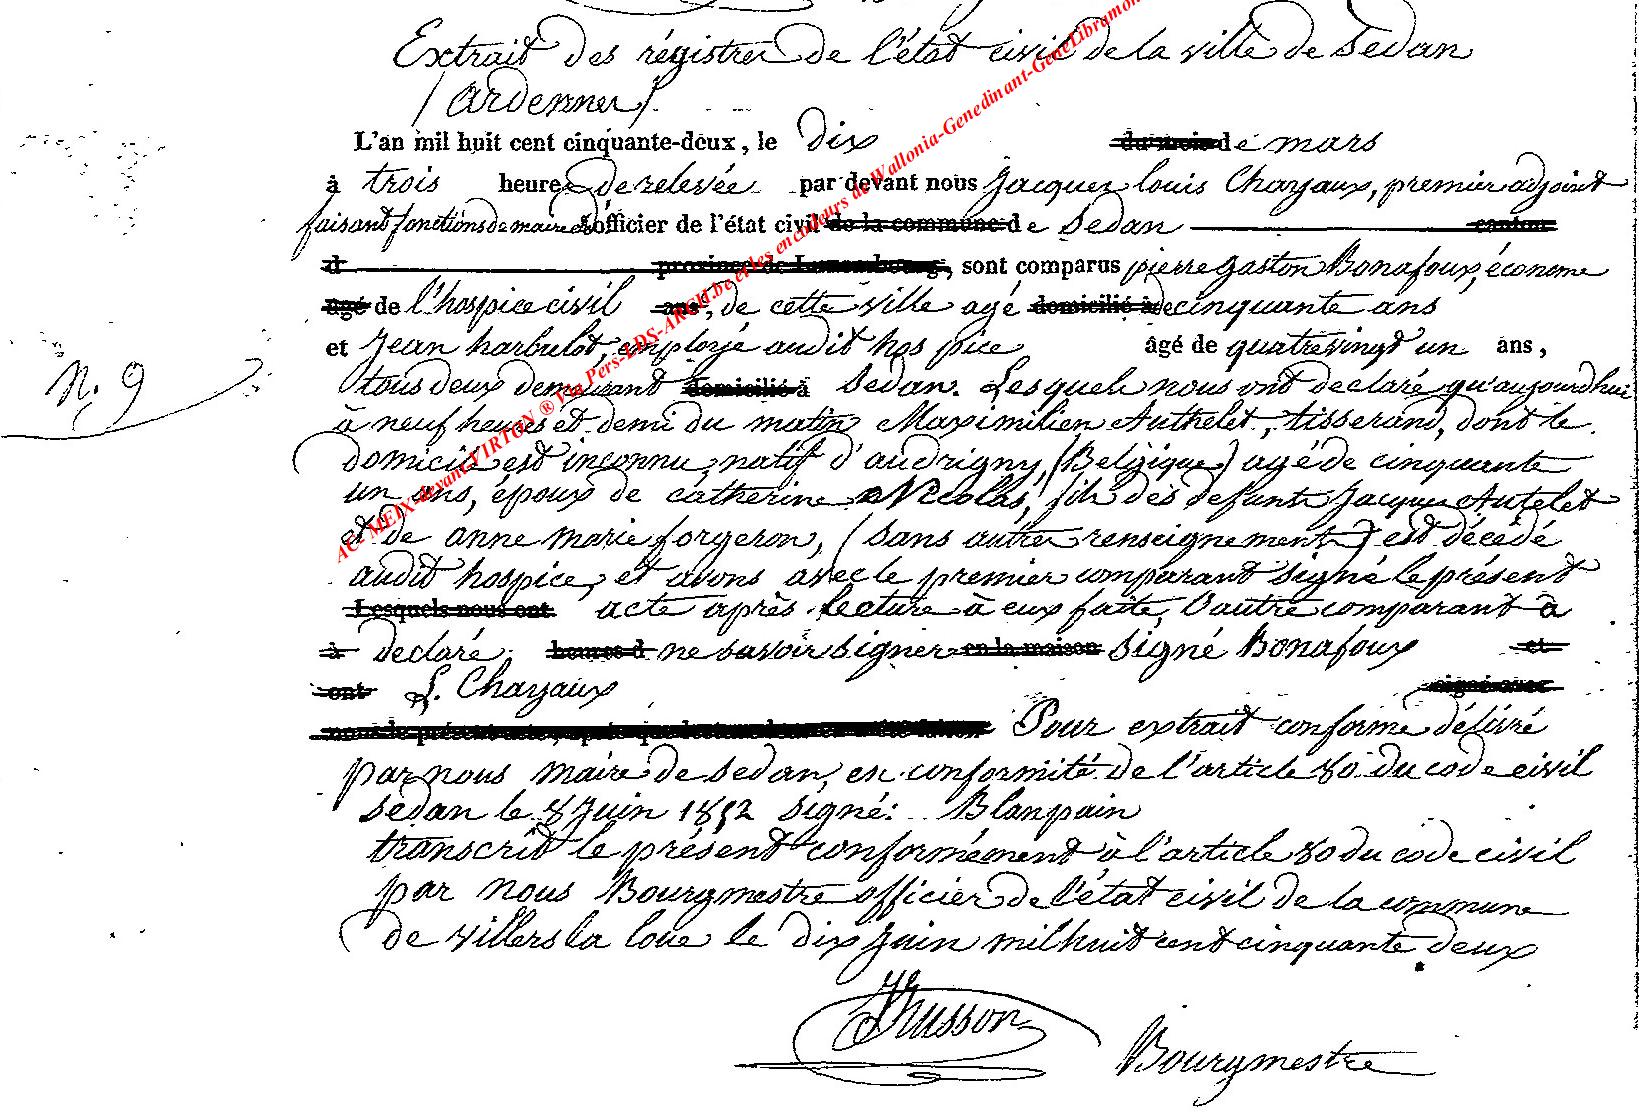 Extrait des régistres de l'état civil de la ville de Sedan
(ardennes).
L'an mil huit cent cinquante-deux, le dix du mois de mars
à trois heures de relevée par devant nous Jacques louis Chayaux, premier adjoint
faisant fonctions de maire et officier de l'état civil de la commune de Sedan canton
d province de Luxembourg, sont comparus pierre gaston Bonafoux, économe
âgé de l'hospice civil ans, de cette ville agé domicilié à de cinquante ans
et Jean harbulot, employé audit hospice âgé de quatrevingt un ans,
tous deux demeurant domicilié à Sedan. Lesquels nous ont declaré qu'aujourdhui
à neuf heures et demi du matin Maximilien Authelet, tisserand, dont le
domicile est inconnu, natif d'audrigny, (Belgique) agé de cinquante
un ans, époux de catherine Nicolas, fils des defunts Jacques Autelet
et de anne marie forgeron, (sans autres renseignements) est décédé
audit hospice, et avons avec le premier comparant signé le présent
Lesquels nous ont acte après lecture à eux faite, l'autre comparant a
à declaré heures d ne savoir signer en la maison signé Bonafoux et
ont L. Chayaux signé avec
nous le présent acte, après que lecture leur en a été faite Pour extrait conforme délivré
par nous maire de Sedan, en conformité de l'article 80 du code civil
Sedan le 8 Juin 1852 signé: Blanpain
transcrit le présent conformément à l'article 80 du code civil
par nous Bourgmestre officier de l'état civil de la commune
de villers la loue le dix Juin mil huit cent cinquante deux
N. 9
JHusson
Bourgmestre
AC- MEIX-devant-VIRTON ® Via Pers-LDS-ARCH.be et les encodeurs de Wallonia-Genedinant-GeneLibramon